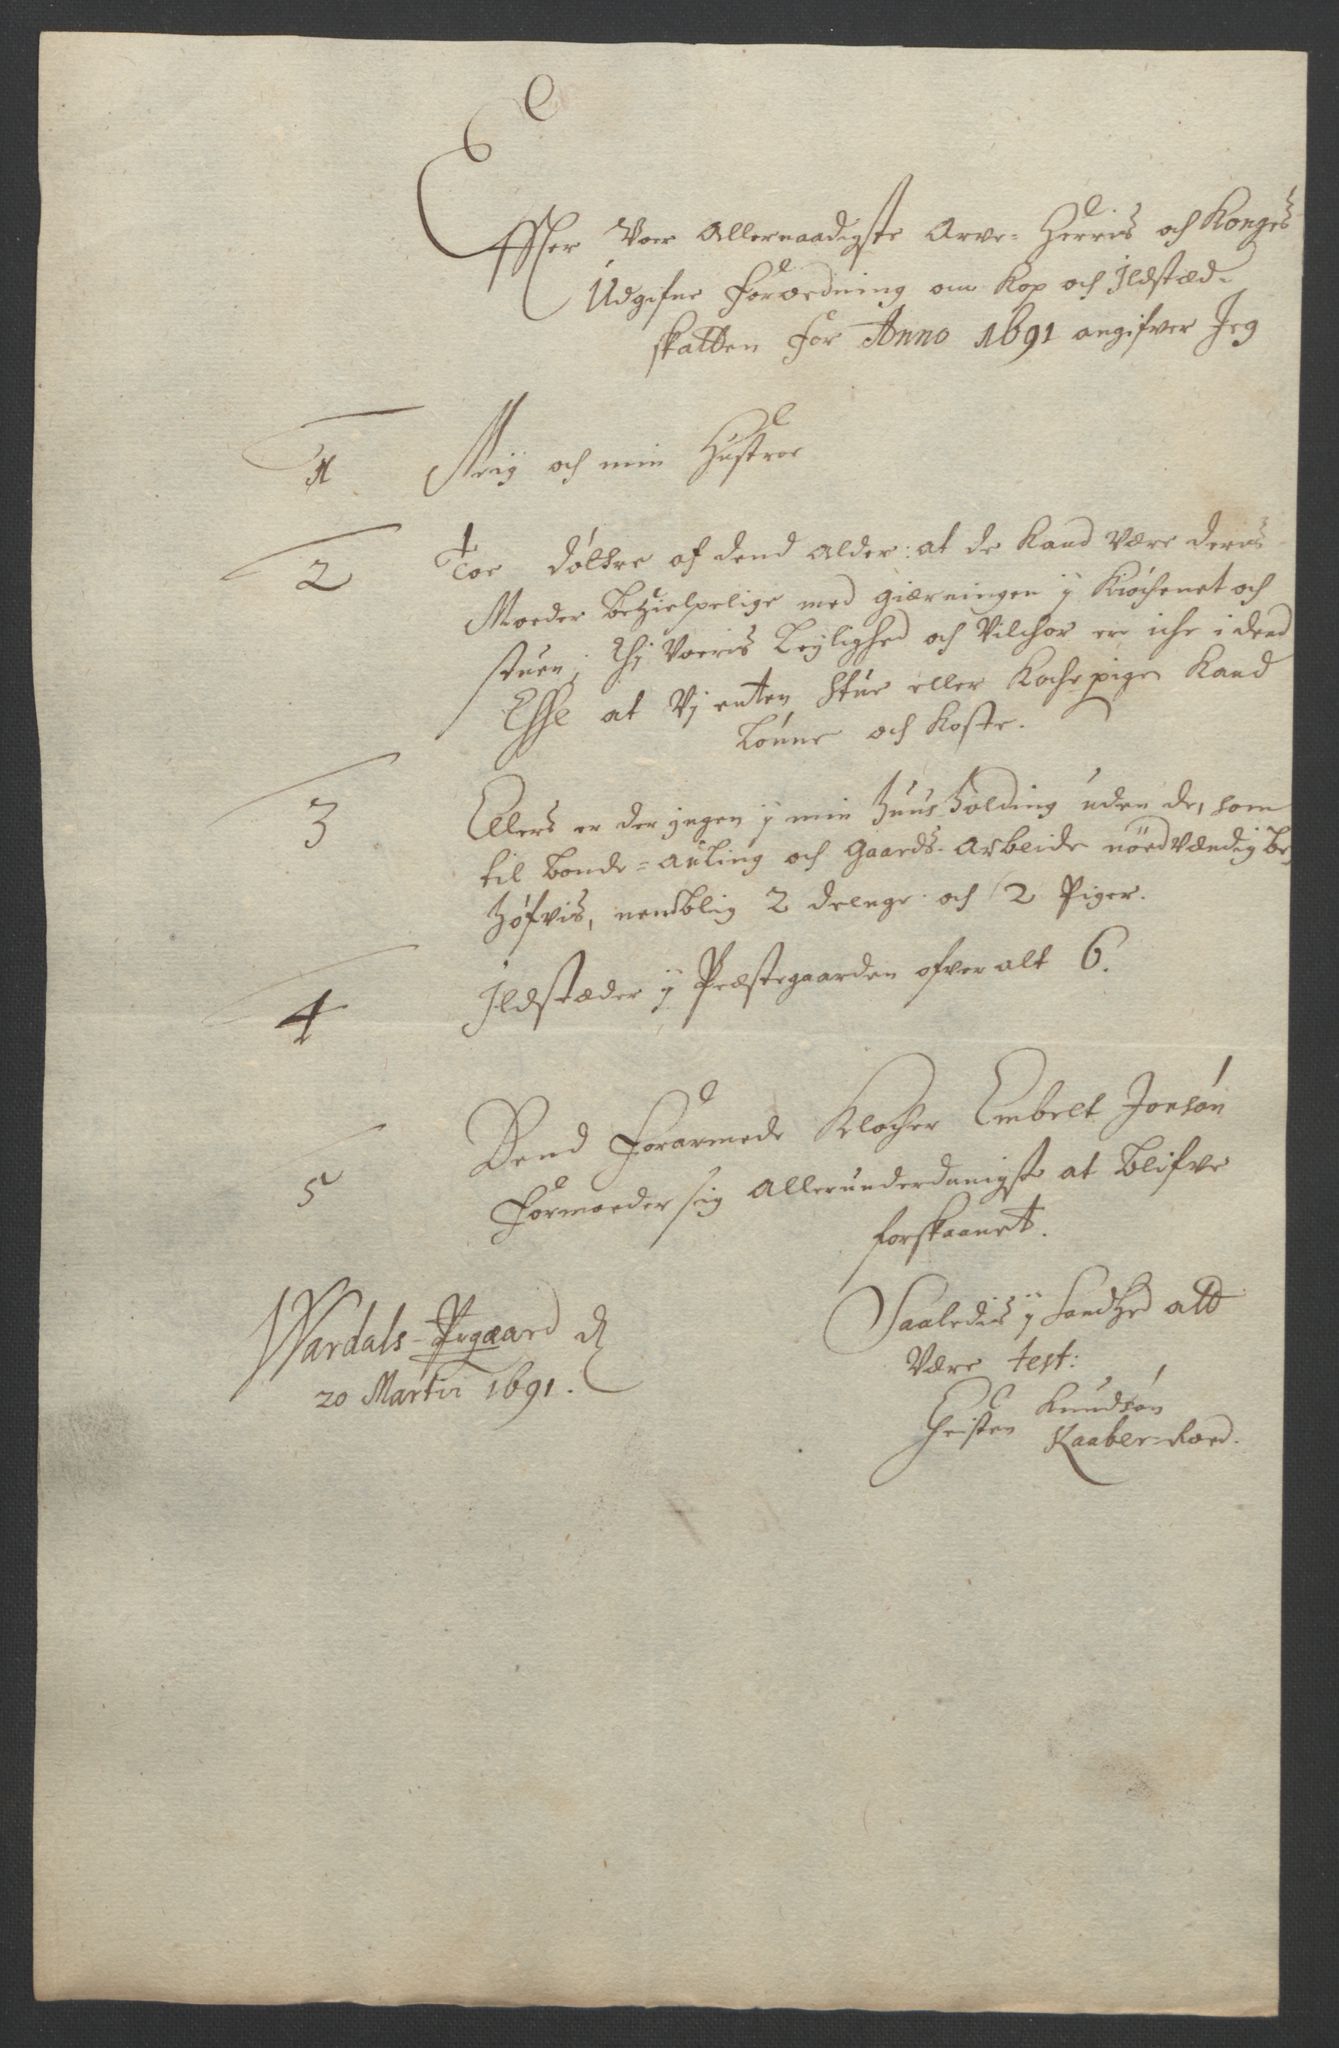 Effter Voer Allernaadigste Arve-Herris och Konges
Udgifne Forordning om Kop och Ildstæd-
skatten for Anno 1691 angifver Jeg
1 Meig och min Hustroe
2 Toe døttre af dend alder: at de kand være deris
Moeder behielpelige med gierningen y Kiøchenet och
stuen, thj Voeris Leylighed och Vilchor er iche i dend
Esse at Vj enten stue eller Kochepige kand
Lønne och koste.
3 Ellers er der jngen y min huusholding uden de, som
til bonde-auling och gaards-arbeide nødvændig be-
høfvis, nemblig 2 drenge och 2 Piger.
4 Ildstæder y Præstegaarden ofver alt 6.
5 Dend Forarmede Klocher Embelt Jonsøn
Formoeder sig allerunderdanigst at blifve
forskaanet.
Saaledis y sandhed att
Være test:
Christen Knudsøn
Kaaber-Roed.
Wardals-Prgaard d
20 Martii 1691.